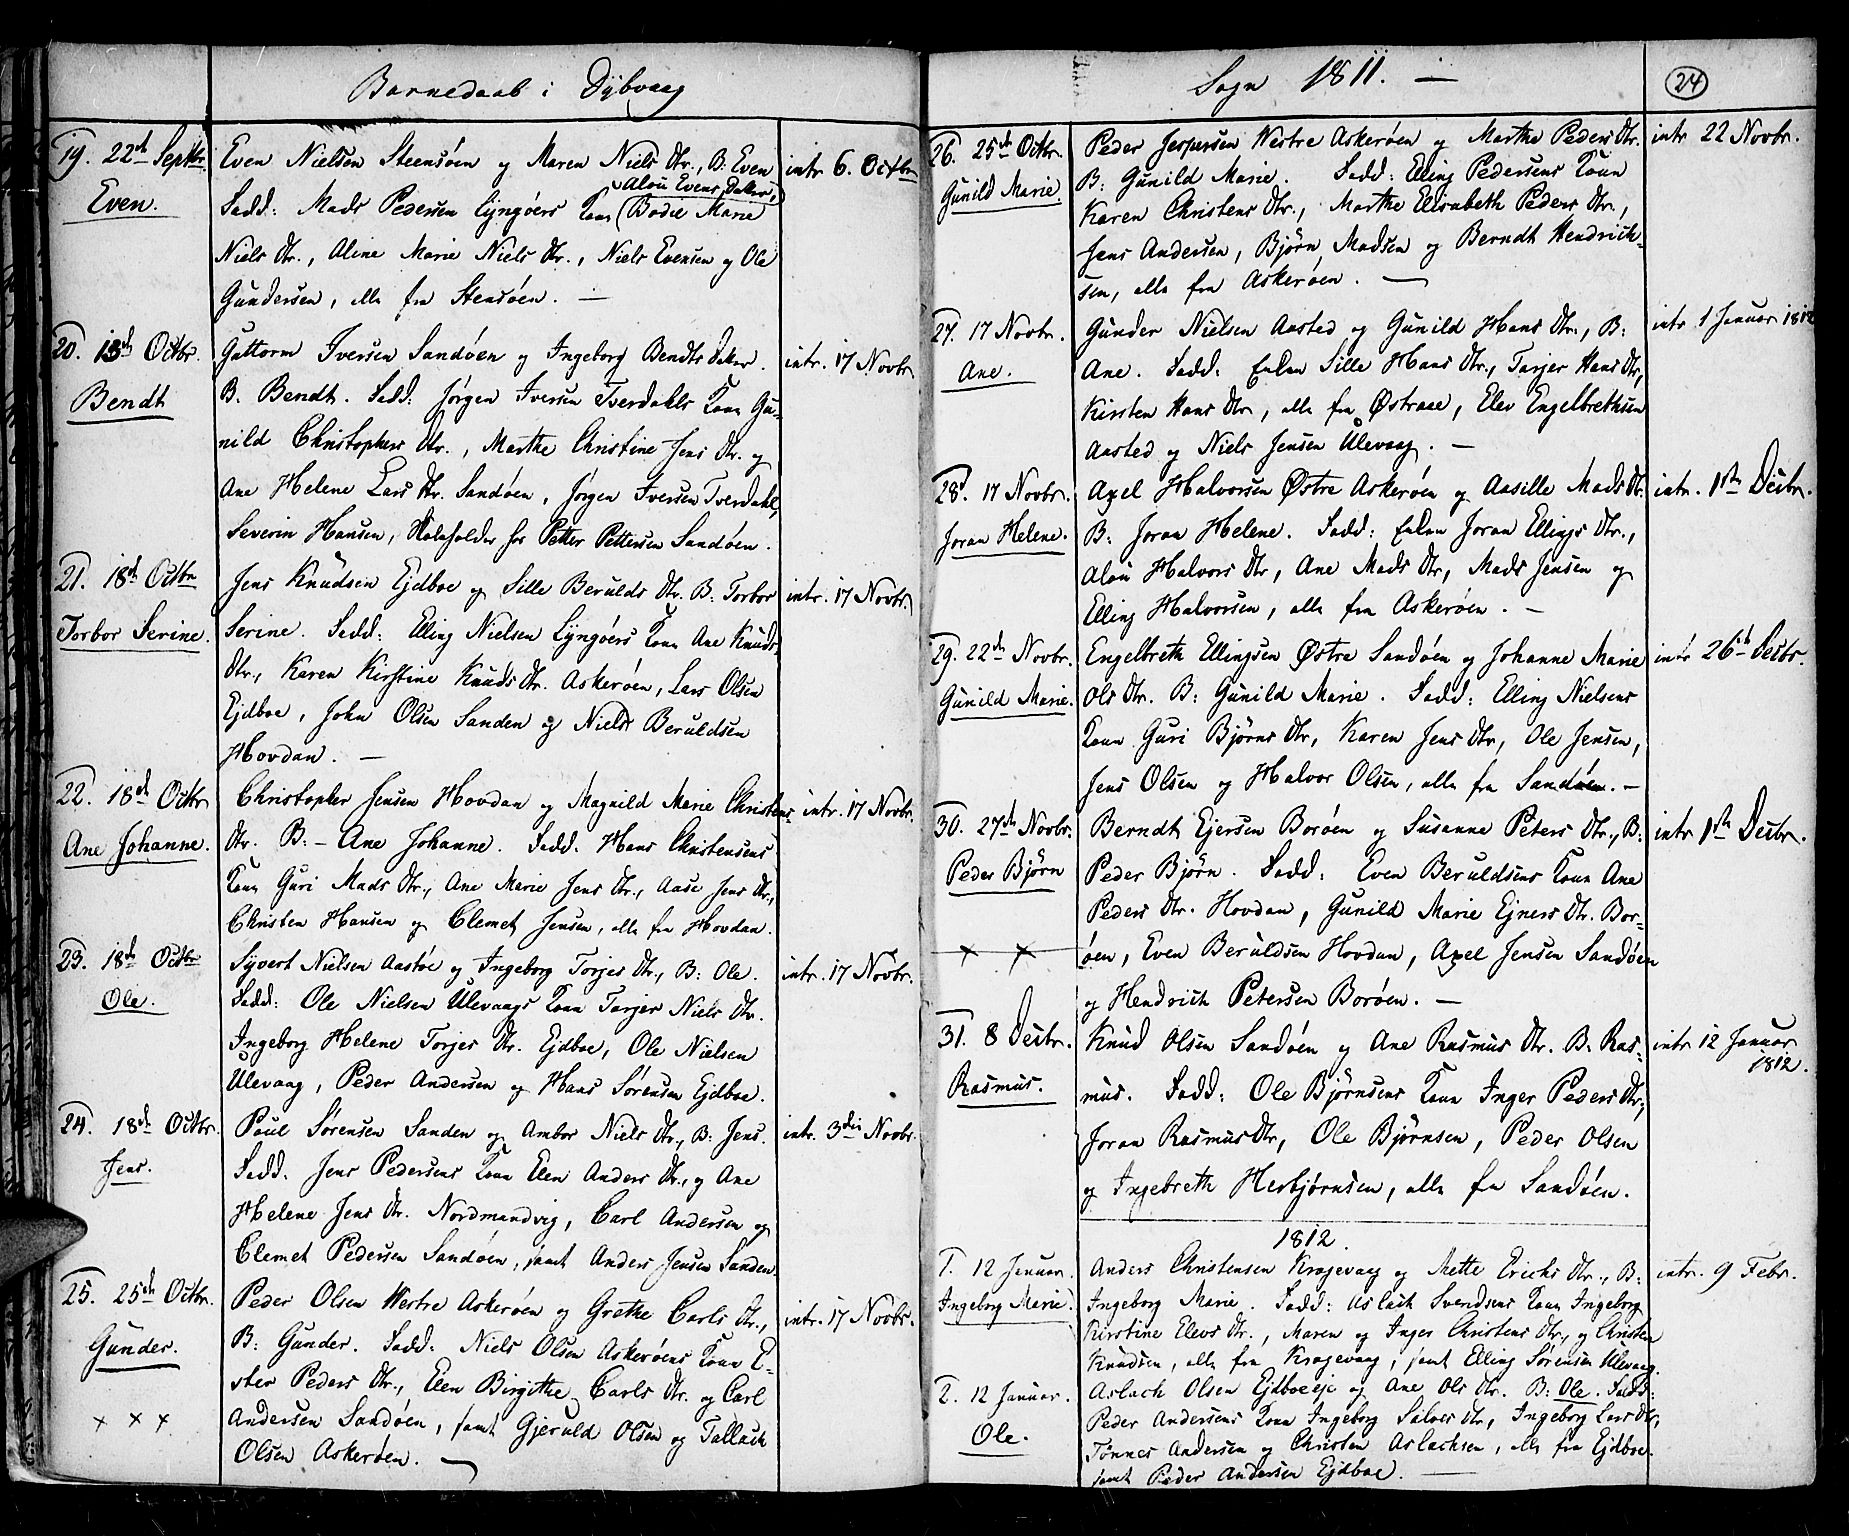 Barnedaab i Dybvaag
19. 22de Septbr.
Even.
Even Nielsen Steensöen og Maren Niels Dtr., B: Even
Alou Evens Datter,
Fadd: Mads Pedersen Lyngöers Kone (Bodil Marie
Niels Dtr., Aline Marie Niels Dtr., Niels Evensen og Ole
Gundersen, alle fra Stensöen. —
intr. 6. Octbr
20. 13de Octbr.
Bendt
Guttorm Iversen Sandöen og Ingeborg Bendts Datter.
B. Bendt. Fadd: Jørgen Iversen Tverdahls Kone Gu-
nild Christophers Dtr., Marthe Christine Jens Dtr. og
Ane Helene Lars Dtr. Sandöen, Jørgen Iversen Tverdahl,
Severin Hansen, Stolefolder for Petter Pettersen Sandöen.
intr. 17 Novbr.
21. 18de Octbr
Torbor Serine.
Jens Knudsen Ejdboe og Sille Berulds Dtr. B: Torbor
Serine. Fadd: Elling Nielsen Lyngöers Kone Ane Knuds
Dtr., Karen Kirstine Knuds Dtr. Askeröen, Lars Olsen
Ejdboe, John Olsen Sanden og Niels Beruldsen
Hovdan. —
intr. 17 Novbr.
22. 18de Octbr
Ane Johanne.
Christopher Jensen Hovdan og Magnild Marie Christens
Dtr. B:- Ane Johanne. Fadd. Hans Christensens
Kone Guri Mads Dtr., Ane Marie Jens Dtr., Aase Jens Dtr.,
Christen Hansen og Clemet Jensen, alle fra Hovdan.
intr. 17 Novbr.
23. 18de Octbr
Ole.
Syvert Nielsen Aastöe og Ingeborg Torjes Dtr., B: Ole.
Fadd: Ole Nielsen Ulevaags Kone Torjer Niels Dtr.
Ingeborg Helene Torjes Dtr. Ejdboe, Ole Nielsen
Ulevaag, Peder Andersen og Hans Sørensen Ejdboe.
intr. 17 Novbr.
24. 18de Octbr.
Jens.
Poul Sørensen Sanden og Ambor Niels Dtr., B: Jens.
Fadd. Jens Pedersens Kone Elen Anders Dtr., og Ane
Helene Jens Dtr. Nordmandvig, Carl Andersen og
Clemet Pedersen Sandöen, samt Anders Jensen Sanden.
intr. 3die Novbr.
25. 25de Octbr.
Gunder.
× × ×
Peder Olsen Westre Askeröen og Grethe Carls Dtr.,
B: Gunder. Fadd: Niels Olsen Askeröens Kone E-
ster Peders Dtr., Elen Birgithe Carls Dtr. og Carl
Andersen Sandöen, samt Gjeruld Olsen og Tallack
Olsen Askeröen. —
intr. 17 Novbr.
Sogn 1811. —
24
26. 25de Octbr.
Gunild Marie.
Peder Jespersen Westre Askeröen og Marthe Peders Dtr.
B: Gunild Marie. Fadd: Elling Pedersens Kone
Karen Christens Dtr., Marthe Elisabeth Peders Dtr.,
Jens Andersen, Bjørn Madsen og Berndt Hendrich-
sen, alle fra Askeröen. —
intr 22 Novbr.
27. 17 Novbr.
Ane.
Gunder Nielsen Aasted og Gunild Hans Dtr., B:
Ane. Fadd: Enken Sille Hans Dtr., Torjer Hans Dtr,
Kirsten Hans Dtr, alle fra Østraae, Elev Engelbrethsen
Aasted og Niels Jensen Ulevaag. —
intr 1 Januar 1812
28. 17 Novbr.
Joran Helene.
Axel Halvorsen Østre Askeröen og Aasille Mads Dtr.
B: Joran Helene. Fadd: Enken Joran Ellings Dtr.,
Alou Halvors Dtr, Ane Mads Dtr, Mads Jensen og
Elling Halvorsen, alle fra Askeröen. —
intr. 1ste Decbr.
29. 22de Novbr.
Gunild Marie.
Engelbreth Ellingsen Østre Sandöen og Johanne Marie
Ols Dtr. B: Gunild Marie. Fadd: Elling Nielsens
Kone Guri Bjørns Dtr, Karen Jens Dtr, Ole Jensen,
Jens Olsen og Halvor Olsen, alle fra Sandöen. —
intr 26de Decbr.
30. 27de Novbr.
Peder Bjørn
× ×
Berndt Ejersen Boröen og Susanne Peters Dtr., B:
Peder Bjørn. Fadd: Even Beruldsens Kone Ane
Peders Dtr. Hovdan, Gunild Marie Ejners Dtr. Bor-
öen, Even Beruldsen Hovdan, Axel Jensen Sandöen
og Hendrich Petersen Boröen. —
intr 1ste Decbr.
31. 8 Decbr.
Rasmus.
Knud Olsen Sandöen og Ane Rasmus Dtr. B: Ras-
mus. Fadd: Ole Bjørnsens Kone Inger Peders Dtr,
Joran Rasmus Dtr, Ole Bjørnsen, Peder Olsen
og Ingebreth Herbjørnsen, alle fra Sandöen.
intr 12 Januar
1812.
1812.
1. 12 Januar.
Ingeborg Marie.
Anders Christensen Kragevaag og Mette Erichs Dtr., B:
Ingeborg Marie. Fadd: Aslach Svendsens Kone Ingeborg
Kirstine Elevs Dtr., Maren og Inger Christens Dtr., og Christen
Knudsen, alle fra Kragevaag, samt Elling Sørensen Ulevaag.
intr. 9 Febr.
2. 12 Januar.
Ole.
Aslach Olsen Ejdboeeje og Ane Ols Dtr. B: Ole. Fadd:
Peder Andersens Kone Ingeborg Salves Dtr, Ingeborg Lars Dtr,
Tønnes Andersen og Christen Aslachsen, alle fra Ejdboe
samt Peder Andersen Ejdboe. —